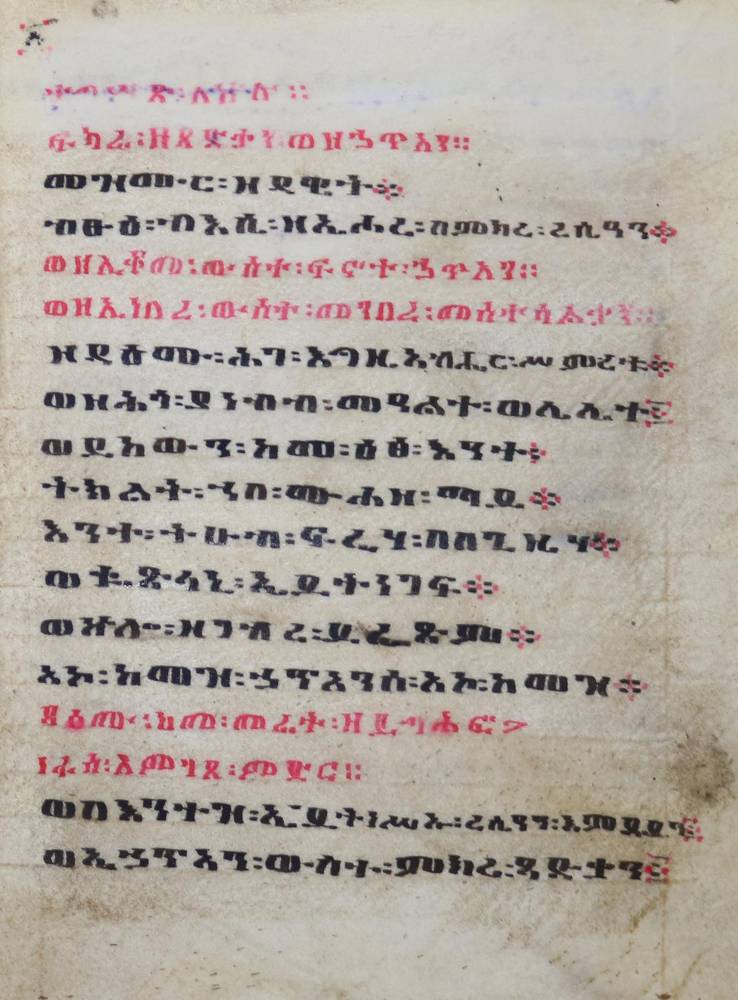 ፍካሬ፡ዘጻድቃን፡ወዘኃጥአን።
መዝሙር፡ዘዳዊት፨
ብፁዕ፡ብእሲ፡ዘኢሖረ፡በምክረ፡ረሲዓን፨
ወዘኢቆመ፡ውስተ፡ፍኖተ፡ኃጥአን።
ወዘኢነበረ፡ውስተ፡መንበረ፡መስተሳልቃን።
ዘዳዕሙ፡ሕገ፡እግዚአብሔር፡ሥምረቱ፨
ወዘሕጎ፡ያነብብ፡መዓልተ፡ወሌሊተ፨
ወይከውን፡ከመ፡ዕፅ፡እንተ፨
ትክልት፡ኀበ፡ሙሐዘ፡ማይ፨
እንተ፡ትሁብ፡ፍሬሃ፡በበጊዜሃ፨
ወቈጽላኒ፡ኢይትነገፍ፨
ወኵሎ፡ዘገብረ፡ይፌጽም፨
አኮ፡ከመዝ፡ኃጥኣንሰ፡አኮ፡ከመዝ፨
ዘዕሙ፡ከመ፡መሬት፡ዘይግሕፍ
ነፋስ፡እምገጸ፡ምድር።
ወበእንተዝ፡ኢይትነሥኡ፡ረሲዓን፡እምደይን፨
ወኢኃጥኣን፡ውስተ፡ምክረ፡ጻድቃን፨